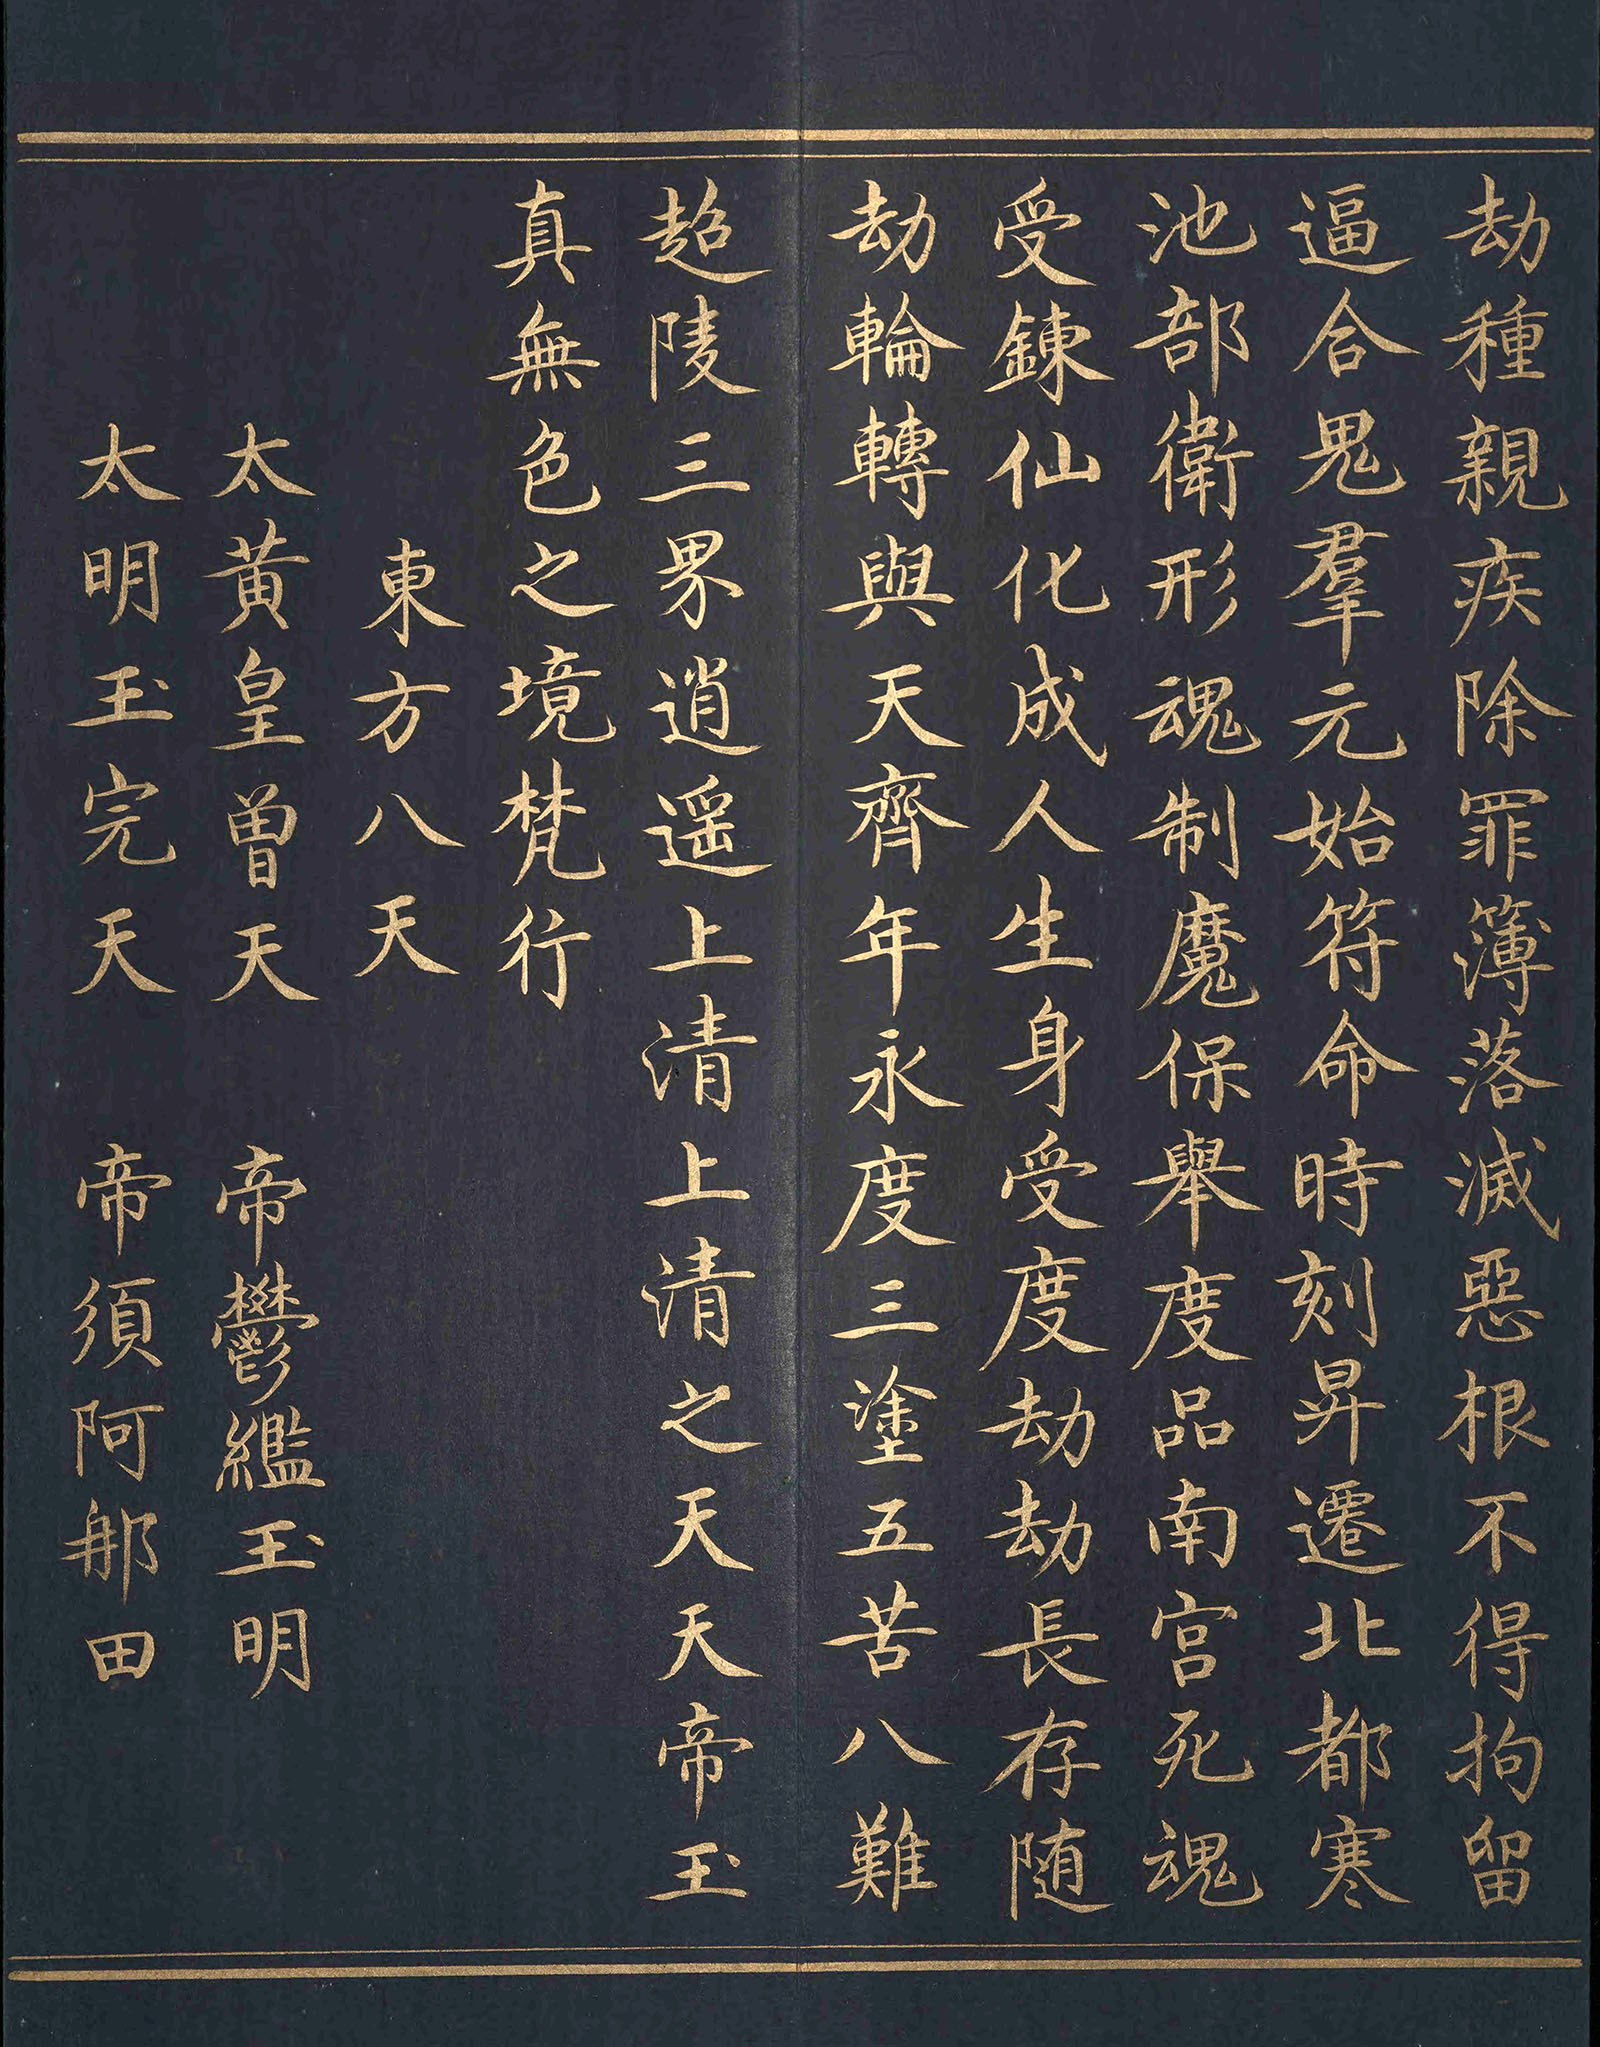 劫種親疾除罪簿落滅惡根不得拘留
逼合鬼羣元始符命時刻昇遷北都寒
池部衛形魂制魔保舉度品南宮死魂
受鍊仙化成人生身受度劫劫長存随
劫輪轉與天齊年永度三塗五苦八難
超陵三界逍遥上清上清之天天帝玉
真無色之境梵行
東方八天
太黄皇曾天 帝鬱繿玉明
太明玉完天 帝須阿郍田